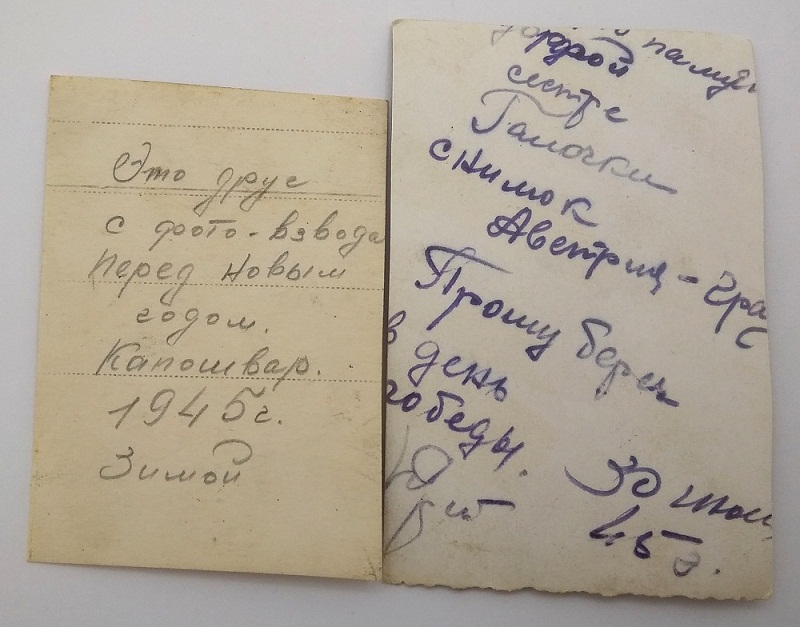 Это друг
с фото-взвода
Перед Новым
годом.
Капошвар.
1945г.
Зимой
сестре
Галочки
снимок
Австрия-Грас
Прошу береч
в день
победы.
30 июл
45г.